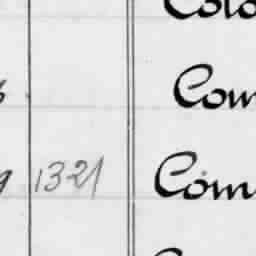 Colo
Com
1321 Com